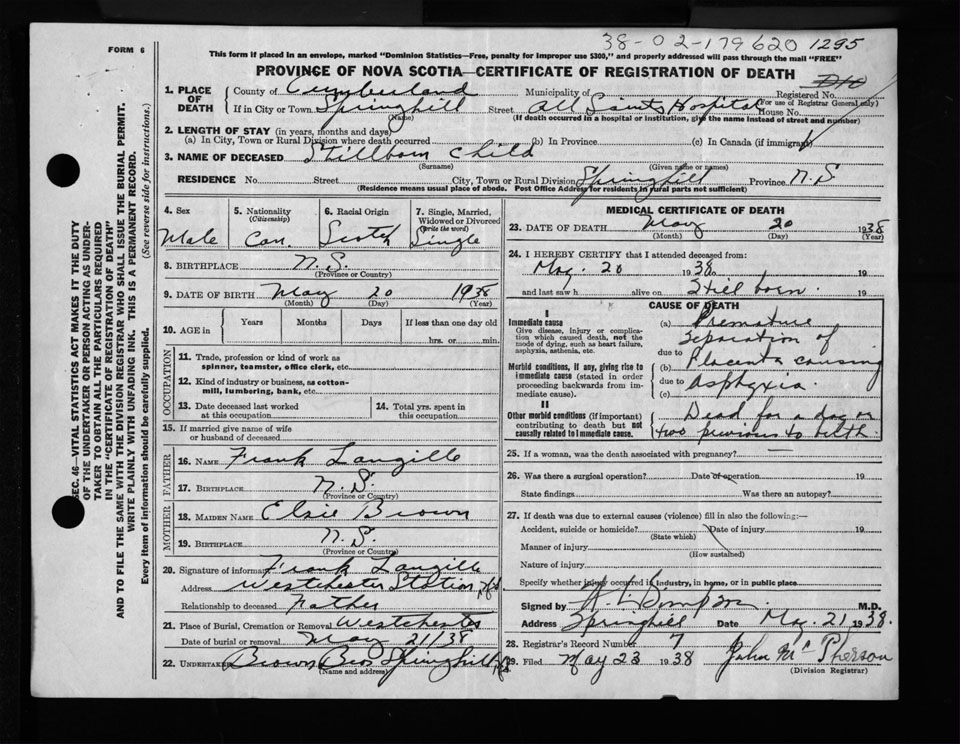 38-02-179620 1295
FORM 6
This form if placed in an envelope, marked "Dominion Statistics—Free, penalty for improper use $300," and properly addressed will pass through the mail "FREE"
PROVINCE OF NOVA SCOTIA—CERTIFICATE OF REGISTRATION OF DEATH
1. PLACE OF DEATH
County of Cumberland Municipality of Registered No.
(For use of Registrar General only)
If in City or Town Springhill Street All Saints Hospital House No.
(Name) (If death occurred in a hospital or institution, give the name instead of street and number)
2. LENGTH OF STAY (in years, months and days)
(a) In City, Town or Rural Division where death occurred (b) In Province (c) In Canada (if immigrant)
3. NAME OF DECEASED Stillborn Child
(Surname) (Given name or names)
RESIDENCE No. Street City, Town or Rural Division Springhill Province N.S
(Residence means usual place of abode. Post Office Address for residents in rural parts not sufficient)
4. Sex Male
5. Nationality (Citizenship) Can.
6. Racial Origin Scotch
7. Single, Married, Widowed or Divorced (Write the word) Single
8. BIRTHPLACE N.S.
(Province or Country)
9. DATE OF BIRTH May 20 1938
(Month) (Day) (Year)
10. AGE in Years Months Days If less than one day old
hrs. or min.
OCCUPATION
11. Trade, profession or kind of work as
spinner, teamster, office clerk, etc.
12. Kind of industry or business, as cotton-
mill, lumbering, bank, etc.
13. Date deceased last worked
at this occupation
14. Total yrs. spent in
this occupation
15. If married give name of wife
or husband of deceased
FATHER
16. NAME Frank Langille
17. BIRTHPLACE N.S.
(Province or Country)
MOTHER
18. MAIDEN NAME Elsie Brown
19. BIRTHPLACE N.S.
(Province or Country)
20. Signature of informant Frank Langille
Address Westchester Station
Relationship to deceased Father
21. Place of Burial, Cremation or Removal Westchester
Date of burial or removal May 21/38
22. UNDERTAKER Brown Bros Springhill
(Name and address)
MEDICAL CERTIFICATE OF DEATH
23. DATE OF DEATH May 20 1938
(Month) (Day) (Year)
24. I HEREBY CERTIFY that I attended deceased from:
May. 20 1938 19
and last saw h alive on Still born. 19
CAUSE OF DEATH
I
Immediate cause
Give disease, injury or complica-
tion which caused death, not the
mode of dying, such as heart failure,
asphyxia, asthenia, etc.
Morbid conditions, if any, giving rise to
immediate cause (stated in order
proceeding backwards from im-
mediate cause).
II
Other morbid conditions (if important)
contributing to death but not
causally related to immediate cause.
(a) Premature
Separation of
due to
(b) Placenta causing
due to asphyxia.
(c)
Dead for a day or
two previous to birth
25. If a woman, was the death associated with pregnancy? —
26. Was there a surgical operation? Date of operation 19
State findings Was there an autopsy?
27. If death was due to external causes (violence) fill in also the following:—
Accident, suicide or homicide? Date of injury 19
(State which)
Manner of injury
(How sustained)
Nature of injury
Specify whether injury occurred in industry, in home, or in public place
Signed by M.D.
Address Springhill Date May. 21 1938.
28. Registrar's Record Number 7
29. Filed May 23 1938 John McPherson
(Division Registrar)
SEC. 46—VITAL STATISTICS ACT MAKES IT THE DUTY
OF THE UNDERTAKER OR PERSON ACTING AS UNDER-
TAKER TO OBTAIN ALL THE PARTICULARS REQUIRED
IN THE "CERTIFICATE OF REGISTRATION OF DEATH"
AND TO FILE THE SAME WITH THE DIVISION REGISTRAR WHO SHALL ISSUE THE BURIAL PERMIT.
WRITE PLAINLY WITH UNFADING INK. THIS IS A PERMANENT RECORD.
Every item of information should be carefully supplied. (See reverse side for instructions.)